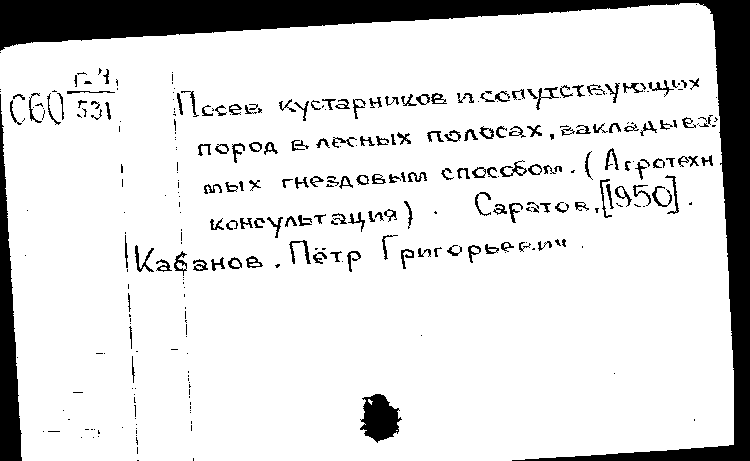 С60 Г-4/531
Посев кустарников и сопутствующих
пород в лесных полосах, закладывае
мых гнездовым способом. (Агротехн.
консультация). Саратов, [1950].
Кабанов, Пётр Григорьевич.